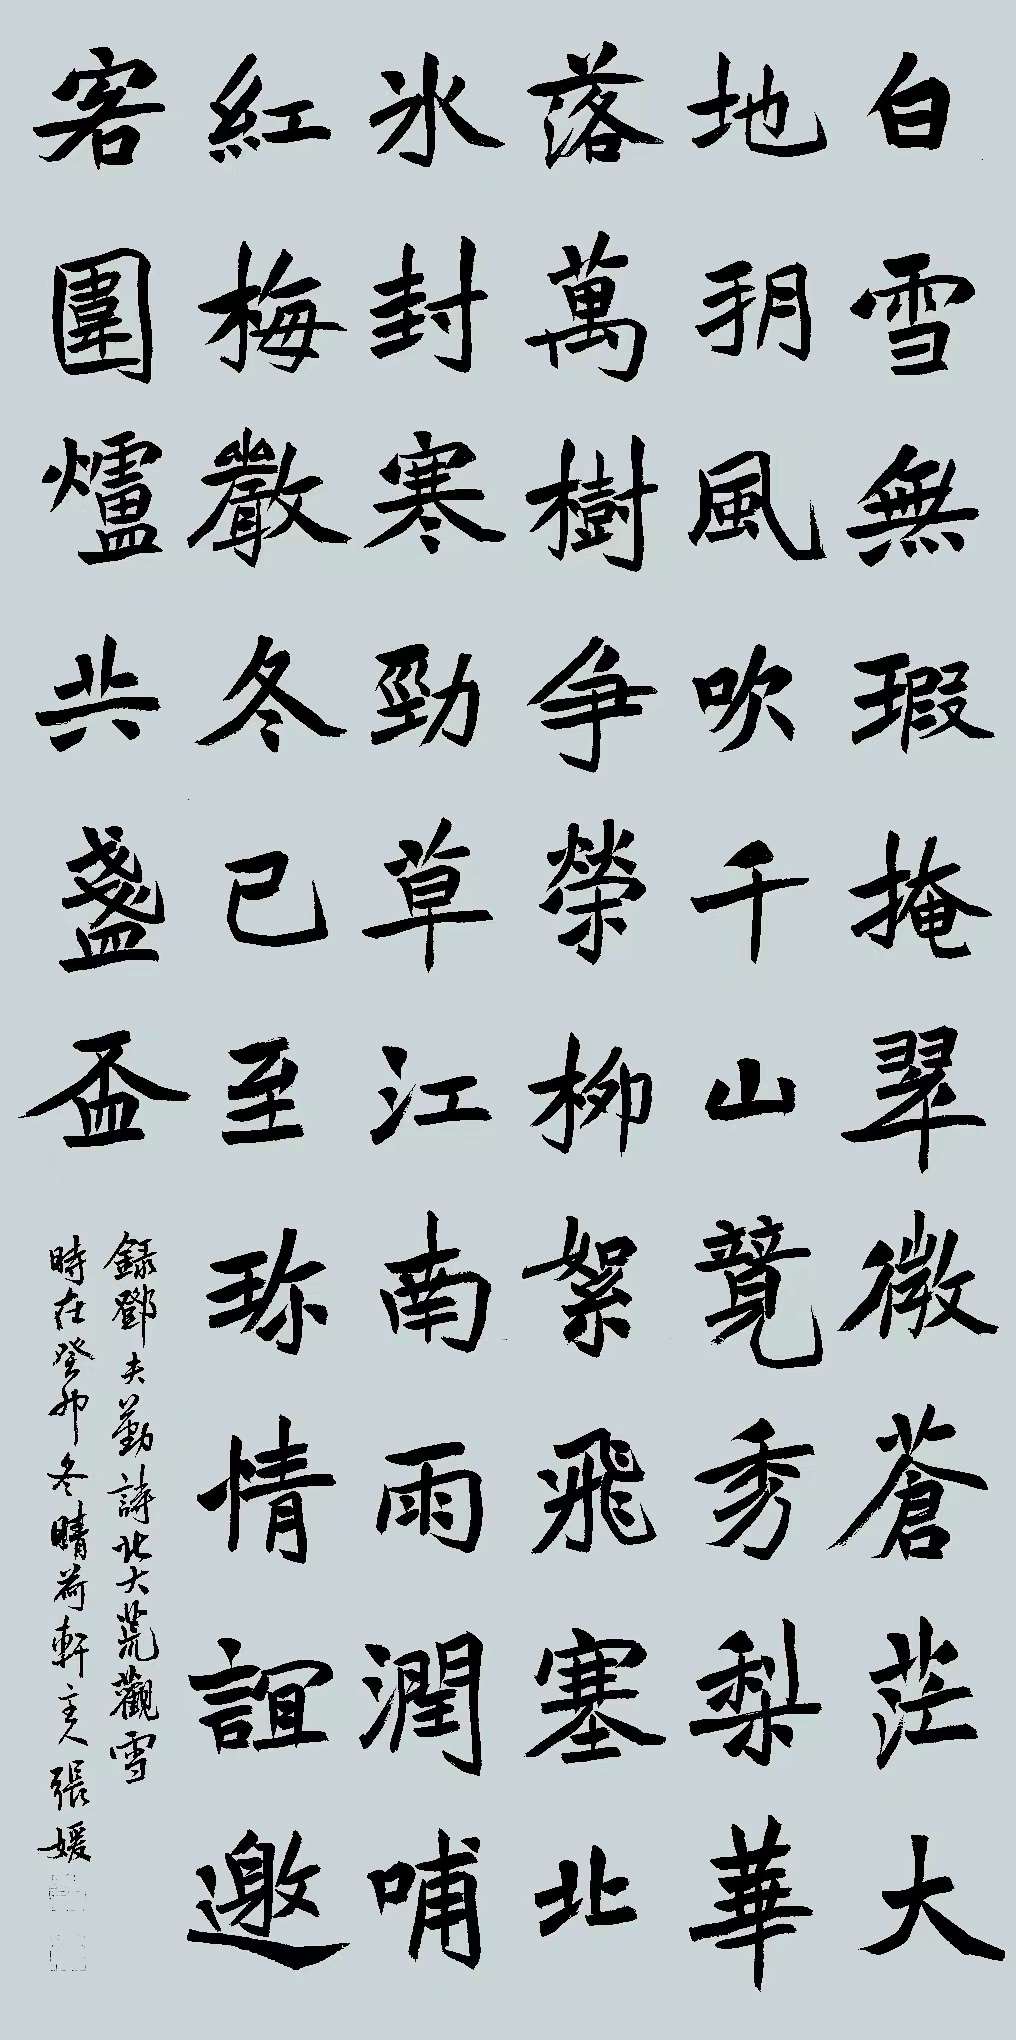 白雪無瑕掩翠微蒼茫大
地朔風吹千山競秀梨華
落萬樹爭榮柳絮飛塞北
氷封寒勁草江南雨潤哺
紅梅嚴冬已至珎情誼邀
客圍爐共盞盃
錄鄧夫勤詩北大荒觀雪
時在癸卯冬晴荷軒主人張媛